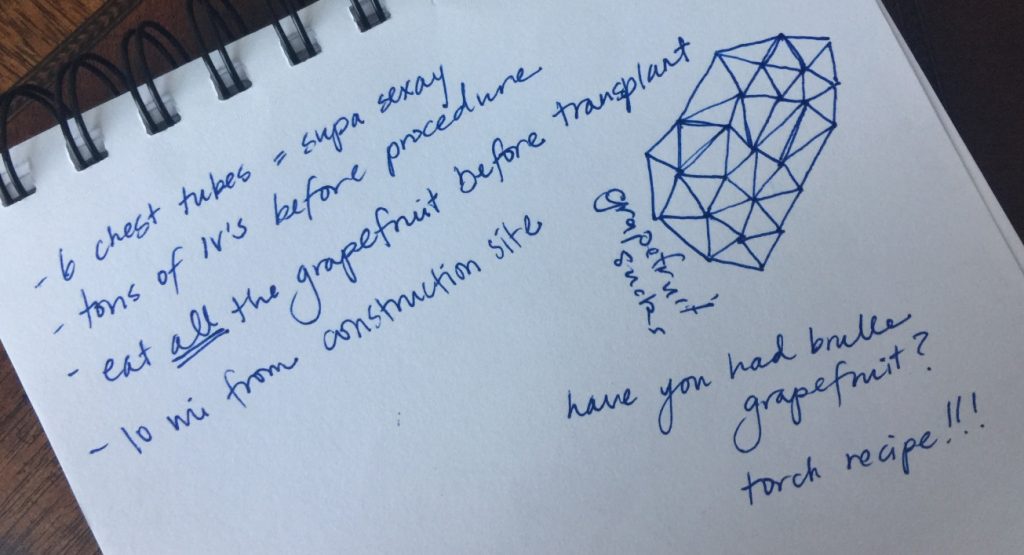 - 6 chest tubes = supa sexay
- tons of IV's before procedure
- eat all the grapefruit before transplant
- 10 mi from construction site
grapefruit
sucks
have you had brulle
grapefruit?
torch recipe!!!